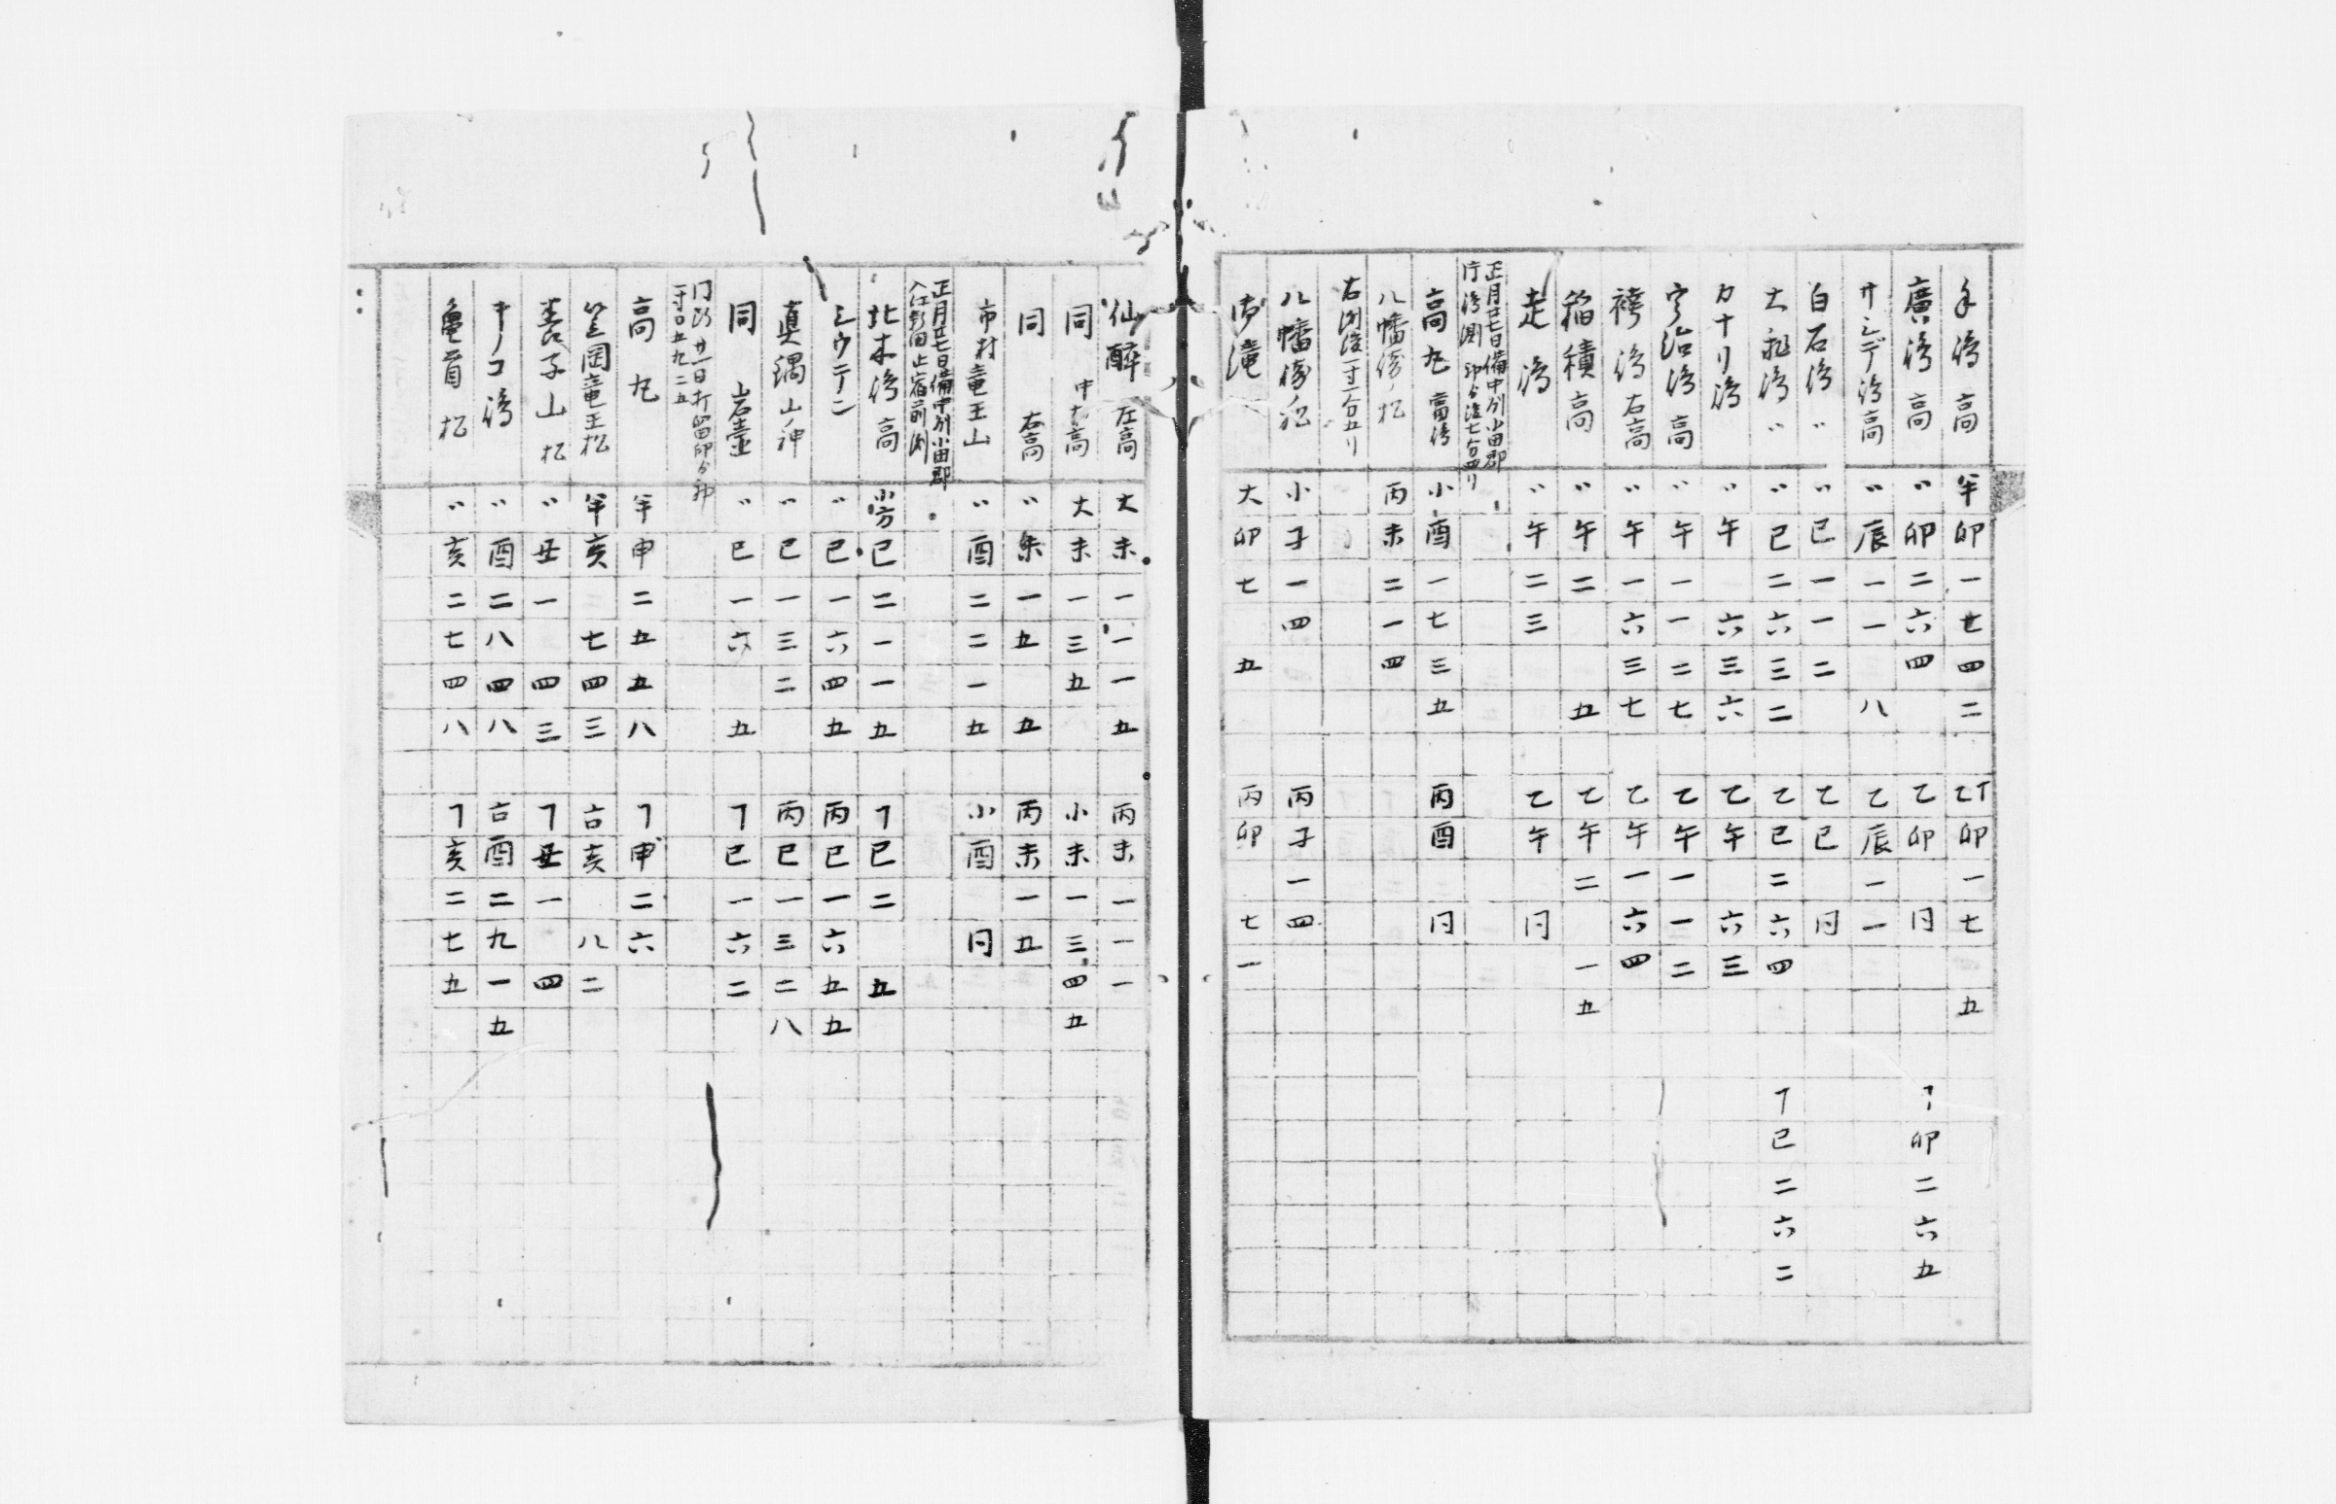 手嶋 高 半 卯 一 七 四 二 乙丁 卯 一 七 五
廣嶋 高 〃 卯 二 六 四 乙 卯 同 丁 卯 二 六 五
サシデ嶋 高 〃 辰 一 一 八 乙 辰 一 一
白石嶋 〃 〃 巳 一 一 二 乙 巳 同
大飛嶋 〃 〃 巳 二 六 三 二 乙 巳 二 六 四 丁 巳 二 六 二
カナリ嶋 〃 午 六 三 六 乙 午 六 三
宇治嶋 高 〃 午 一 一 二 七 乙 午 一 一 二
袴嶋 右高 〃 午 一 六 三 七 乙 午 一 六 四
稲積 高 〃 午 二 五 乙 午 二 一 五
走嶋 〃 午 二 三 乙 午 同
正月廿七日備中州小田郡
高丸 小 酉 一 七 三 五 丙 酉 同
八幡 松 丙 未 二 一 四
八幡 小 子 一 四 丙 子 一 四
滝 大 卯 七 五 丙 卯 七 一
仙醉 左高 大 未 一 一 一 五 丙 未 一 一 一
同 中高 大 未 一 三 五 小 未 一 三 四 五
同 右高 〃 未 一 五 五 丙 未 一 五
市村竜王山 〃 酉 二 二 一 五 小 酉 同
正月廿七日備中州小田郡
入江新田止宿前測
北木嶋 高 小方 巳 二 一 一 五 丁 巳 二 五
ミウテーン 〃 巳 一 六 四 五 丙 巳 一 六 五 五
真鍋山ノ神 〃 巳 一 三 二 丙 巳 一 三 二 八
同 岩壷 〃 巳 一 六 五 丁 巳 一 六 二
高丸 半 申 二 五 五 八 丁 申 二 六
笠岡竜王松 半 亥 七 四 三 古 亥 八 二
養子山 松 〃 丑 一 四 三 丁 丑 一 四
キノコ嶋 〃 酉 二 八 四 八 古 酉 二 九 一 五
亀首 松 〃 亥 二 七 四 八 丁 亥 二 七 五